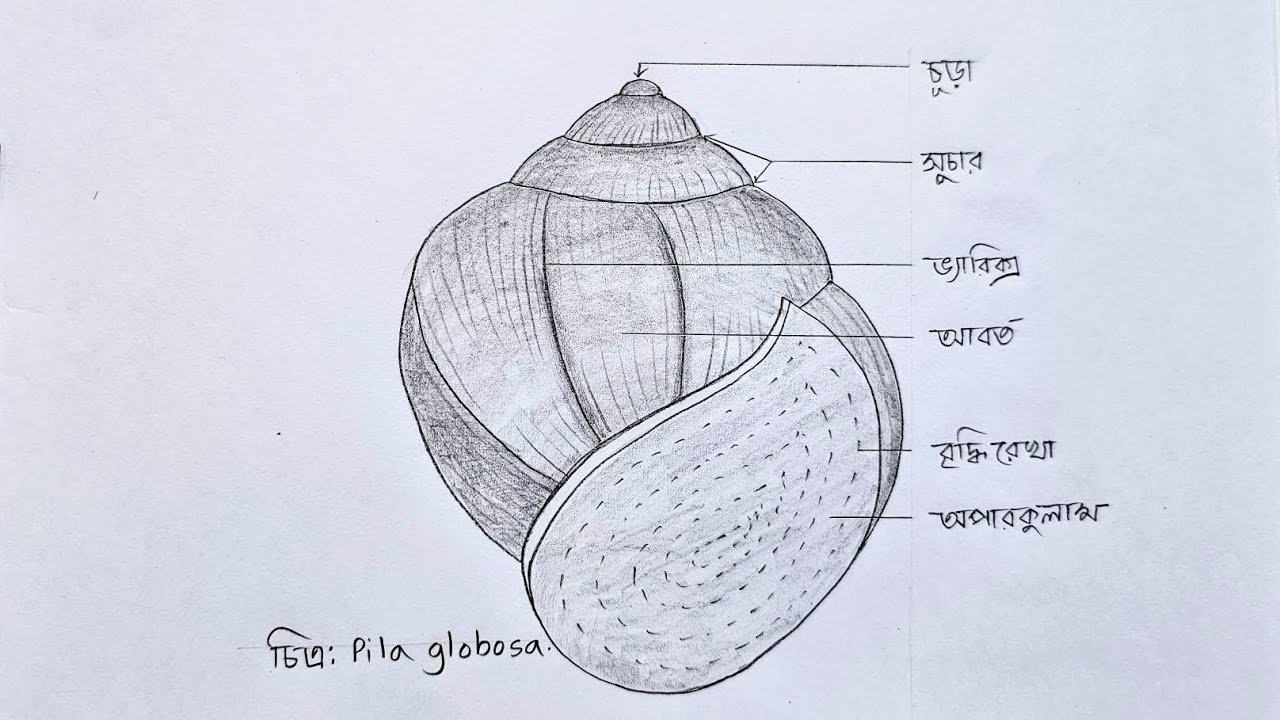 চূড়া
সুচার
ভ্যারিক্স
আবর্ত
বৃদ্ধি রেখা
অপারকুলাম
চিত্র: Pila globosa.